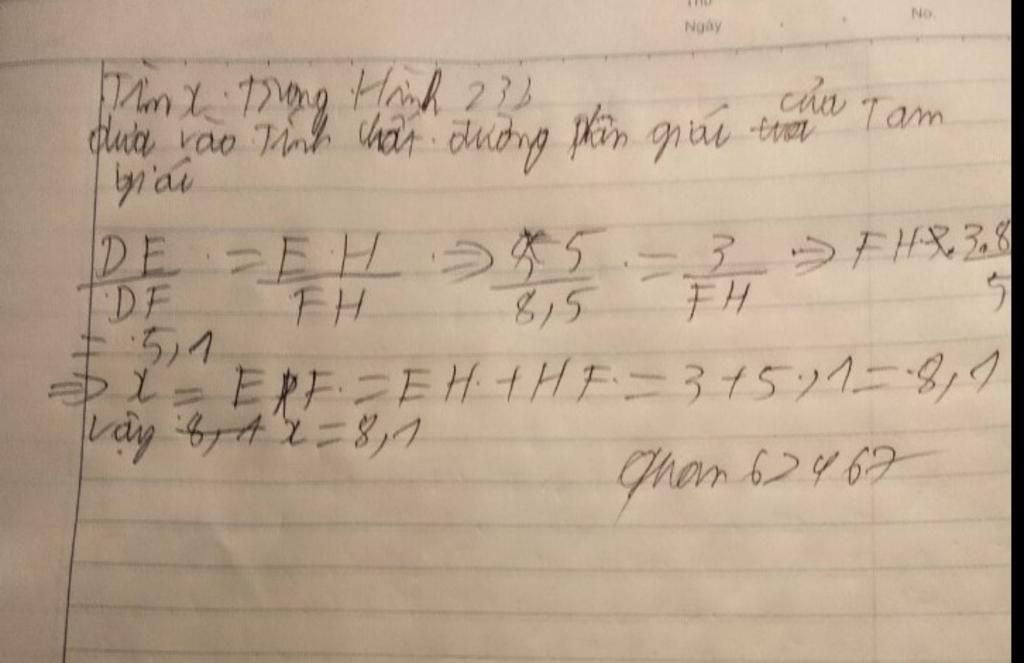 Thứ
Ngày
No.
Tìm x trong Hình 23b
dựa vào Tính chất đường phân giái của Tam
giái
DE/DF = EH/FH ⇒ 5/8,5 = 3/FH ⇒ FH 3.8 5
= 5,1
⇒ x = EF = EH + HF = 3 + 5,1 = 8,1
Vậy x = 8,1
quan 62467